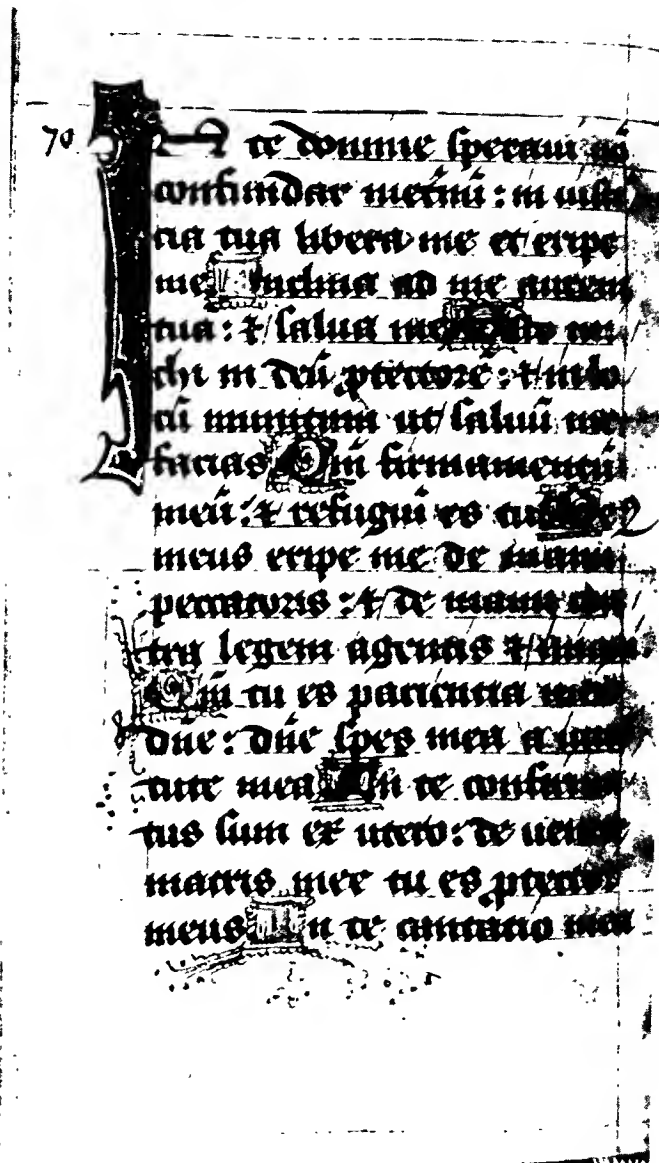 70 In te domine speraui nō
confundar ineternū : in iusti
cia tua libera me et eripe
me Inclina ad me aurem
tuā : ⁊ salua me Esto mi
chi in deū ꝓtectorē : ⁊ in lo
cū munitum ut saluū me
facias Qm̄ firmamentū
meū : ⁊ refugiū es tu Deus
meus eripe me de manu
peccatoris : ⁊ de manu con
tra legem agentis ⁊ iniqui
Qm̄ tu es paciencia mea
dūe : dūe spes mea a iuuē
tute mea In te confirma
tus sum ex utero : de uentre
matris mee tu es ꝓtector
meus In te cantatio mea